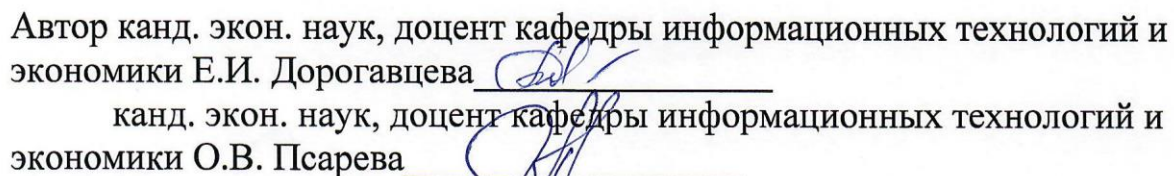 Автор канд. экон. наук, доцент кафедры информационных технологий и
экономики Е.И. Дорогавцева
канд. экон. наук, доцент кафедры информационных технологий и
экономики О.В. Псарева